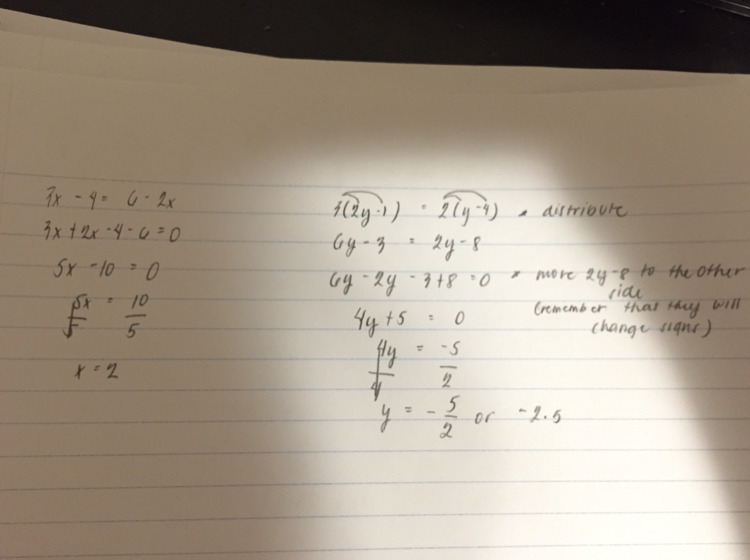 3x - 4 = 6 - 2x
3x + 2x - 4 - 6 = 0
5x - 10 = 0
5x = 10
5 5
x = 2
3(2y-1) = 2(y-4) * distribute
6y - 3 = 2y - 8
6y - 2y - 3 + 8 = 0 * move 2y-8 to the other
side
(remember that they will
change signs)
4y + 5 = 0
4y = -5
4 2
y = - 5/2 or -2.5